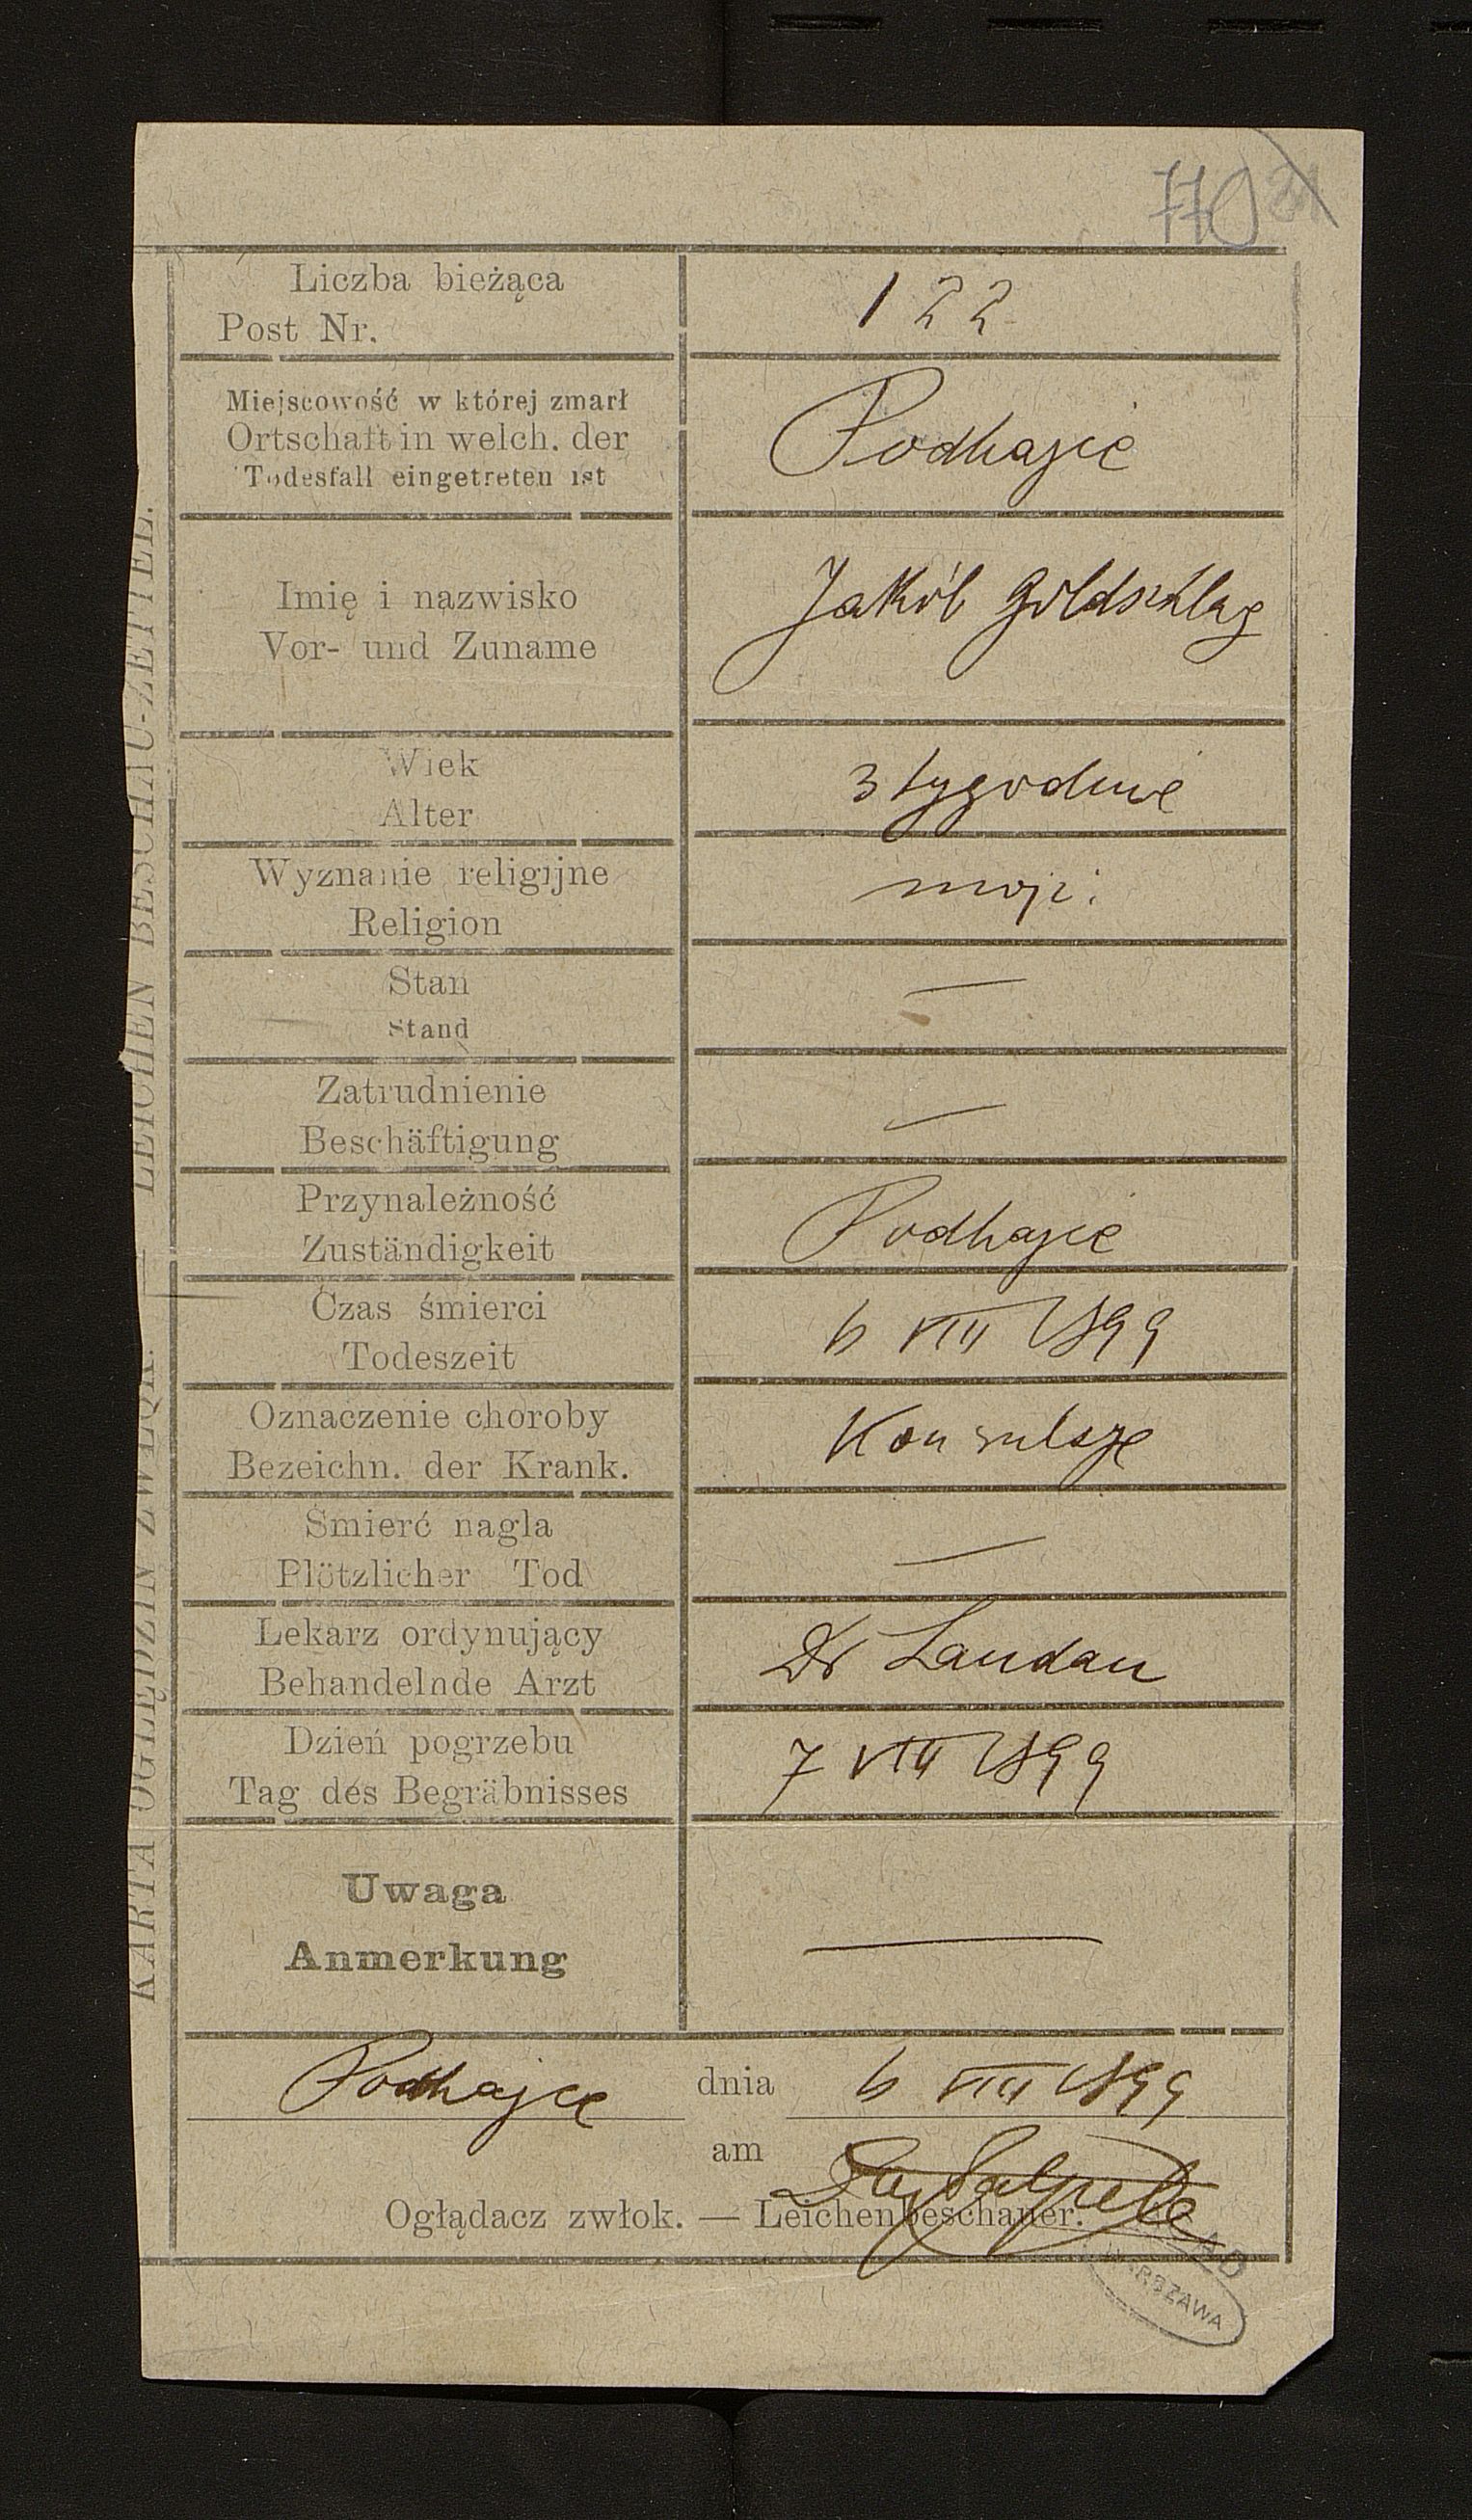 770
Liczba bieżąca
Post Nr.
122
Miejscowość w której zmarł
Ortschaft in welch. der
Todesfall eingetreten ist
Podhajce
Imię i nazwisko
Vor- und Zuname
Jakób Goldschlag
Wiek
Alter
3 tygodnie
Wyznanie religijne
Religion
mojż:
Stan
Stand
—
Zatrudnienie
Beschäftigung
—
Przynależność
Zuständigkeit
Podhajce
Czas śmierci
Todeszeit
6 VIII 1899
Oznaczenie choroby
Bezeichn. der Krank.
Konwulsje
Śmierć nagla
Plötzlicher Tod
—
Lekarz ordynujący
Behandelnde Arzt
Dr Landau
Dzień pogrzebu
Tag des Begräbnisses
7 VIII 1899
Uwaga
Anmerkung
—
Podhajce dnia 6 VIII 1899
am
Ogłądacz zwłok. — Leichenbeschauer.
WARSZAWA
KARTA OGLĘDZIN ZWŁOK. — LEICHEN BESCHAU-ZETTEL.